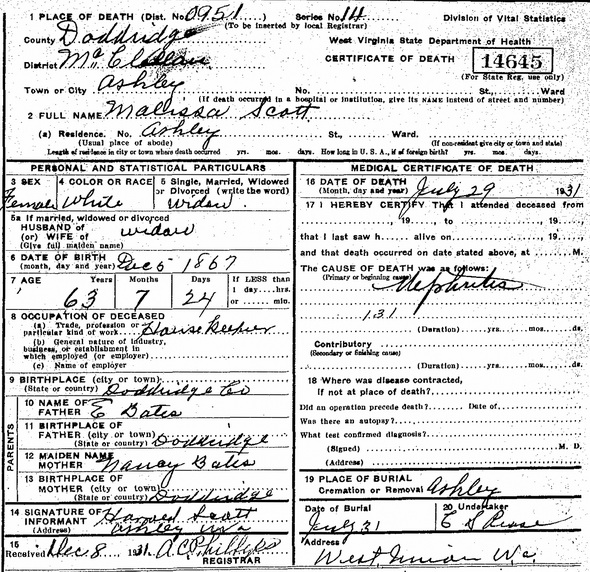 1 PLACE OF DEATH (Dist. No. 0951 Series No. 14 Division of Vital Statistics
(To be inserted by local Registrar)
County Doddridge West Virginia State Department of Health
District Mc Clellan CERTIFICATE OF DEATH 14645
(For State Reg. use only)
Town or City Ashley No. St., Ward
(If death occurred in a hospital or institution, give its NAME instead of street and number)
2 FULL NAME Malissa Scott
(a) Residence. No. Ashley St., Ward.
(Usual place of abode) (If non-resident give city or town and state)
Length of residence in city or town where death occurred yrs. mos. days. How long in U. S. A., if of foreign birth? yrs. mos. days.
PERSONAL AND STATISTICAL PARTICULARS
3 SEX 4 COLOR OR RACE 5 Single, Married, Widowed
or Divorced (write the word)
Female White Widow
5a If married, widowed or divorced
HUSBAND of
(or) WIFE of widow
(Give full maiden name)
6 DATE OF BIRTH
(month, day and year) Dec 5 1867
7 AGE Years Months Days If LESS than
1 day....hrs.
or.....min.
63 7 24
8 OCCUPATION OF DECEASED
(a) Trade, profession or
particular kind of work House Keeper
(b) General nature of industry,
business, or establishment in
which employed (or employer)
(c) Name of employer
9 BIRTHPLACE (city or town)
(State or country) Doddridge Co
PARENTS
10 NAME OF
FATHER E Bates
11 BIRTHPLACE OF
FATHER (city or town)
(State or country) Doddridge
12 MAIDEN NAME
MOTHER Nancy Bates
13 BIRTHPLACE OF
MOTHER (city or town)
(State or country) Doddridge
14 SIGNATURE OF
INFORMANT Scott
(Address) Ashley
15
Received Dec. 8 1931. A. C. Phillips
REGISTRAR
MEDICAL CERTIFICATE OF DEATH
16 DATE OF DEATH
(Month, day and year) July 29 1931
17 I HEREBY CERTIFY That I attended deceased from
, 19...., to , 19....
that I last saw h.... alive on , 19....,
and that death occurred on date stated above, at M.
The CAUSE OF DEATH was as follows:
(Primary or beginning cause)
Nephritis
131
(Duration) yrs. mos. ds.
Contributory
(Secondary or finishing cause)
(Duration) yrs. mos. ds.
18 Where was disease contracted,
If not at place of death?
Did an operation precede death? Date of
Was there an autopsy?
What test confirmed diagnosis?
(Signed) M. D.
(Address)
19 PLACE OF BURIAL
Cremation or Removal Ashley
Date of Burial 20 Undertaker
July 31 E S
Address
West Union W Va.